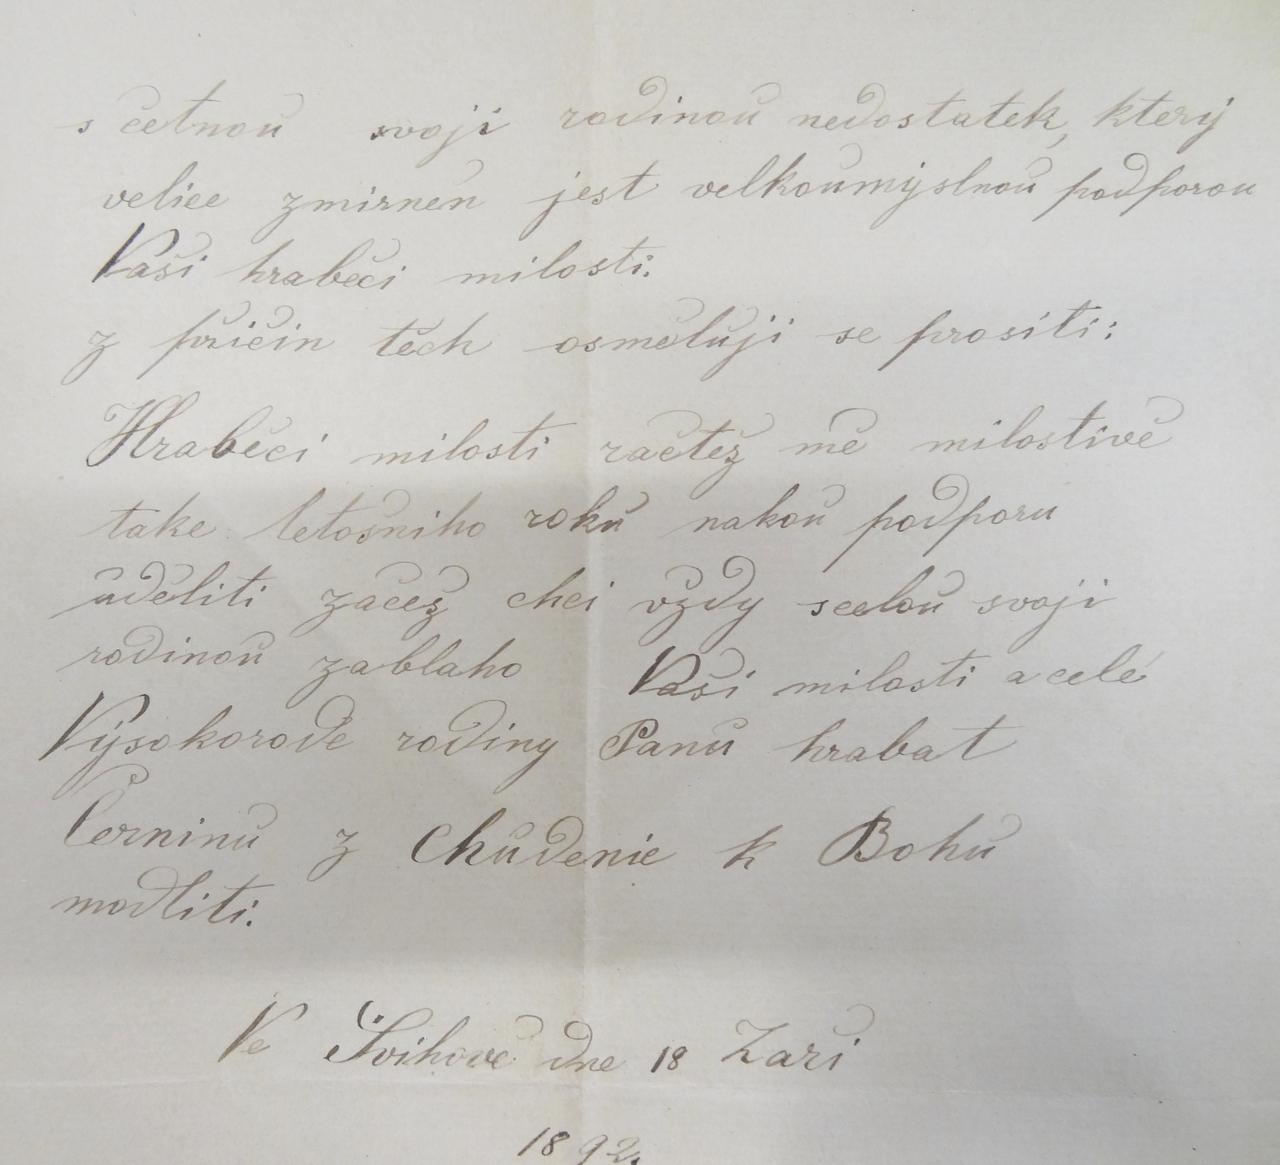 s četnou svoji rodinou nedostatek, který
velice zmirnen jest velkoumyslnou podporou
Vaši hraběci milosti.
z přičin těch osměluji se prositi:
Hraběci milosti račtež mě milostivě
take letošniho roku nakou podporu
uděliti začež chci vždy scelou svoji
rodinou zablaho Vaši milosti a celé
Vysokorodé rodiny Panu hrabat
Černinu z Chudenic k Bohu
modliti.
Ve Švihově dne 18 Zaři
1892.